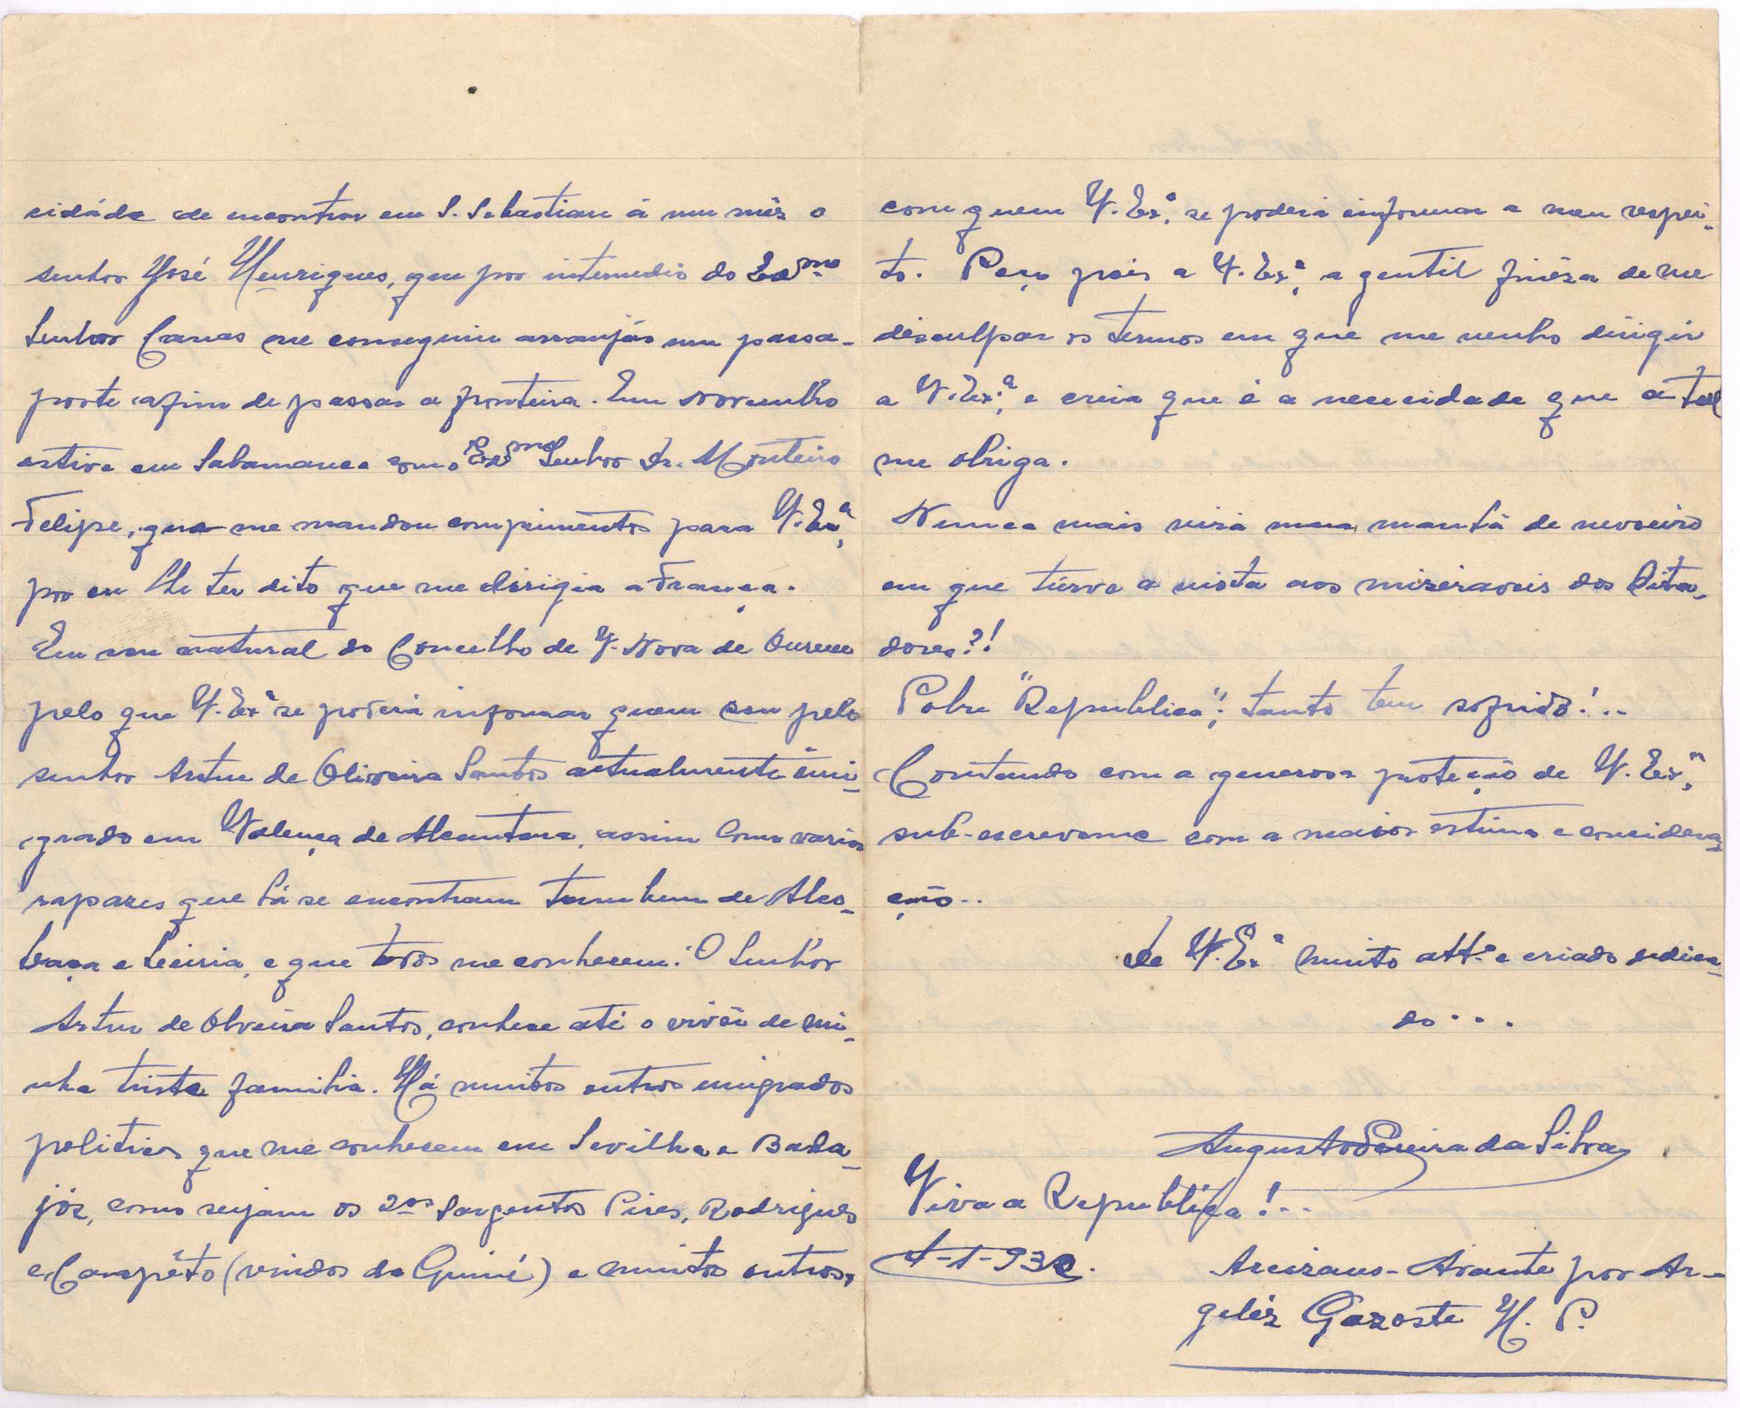 cidáde de encontrar em S. Sebastian á um mês o
senhor José Henriques, que por intermedio do Exmo
Senhor Canas me conseguiu arranjár um passa-
porte afim de passar a fronteira. Em Novembro
estive em Salamanca com o Exmo Senhor Dr. Monteiro
Felipe, que me mandou comprimentos para V. Exª,
por eu lhe ter dito que me dirigia a França.
Eu sou natural do Concelho de V. Nova de Ourem
pelo que V. Exª se poderá informar quem sou pelo
senhor Artur de Oliveira Santos actualmente êmi-
grado em Valença de Alcantara, assim como varios
rapazes que lá se encontram tambem de Alco-
baça e Leiria, e que todos me conhecem. O Senhor
Artur de Olveira Santos, conhece até o vivêr de mi-
nha triste familia. Há muitos outros emigrados
politicos que me conhecem em Sevilha e Bada-
józ, como sejam os 2os Sargentos Pires, Rodrigues
e Campêto (vindos da Guiné) e muitos outros,
com quem V. Exª. se poderá informar a meu respei-
to. Peço pois a V. Exª, a gentil finêza de me
desculpar os termos em que me venho dirigir
a V. Exª, e creia que é a necessidade que a tal
me obriga.
Nunca mais virá uma manhã de nevoeiro
em que túrve a vista aos miseraveis dos Dita-
dores?!
Pobre "Republica", tanto tem sofrido!..
Contando com a generosa proteção de V. Exª,
sub-escrevome com a maior estima e considera-
ção..
de V. Exª muito attº e criado dedica-
do...
Augusto Pereira da Silva
Viva a Republica!..
1-1-932.
Arcizans-Avante por Ar-
geléz Gazoste H. P.